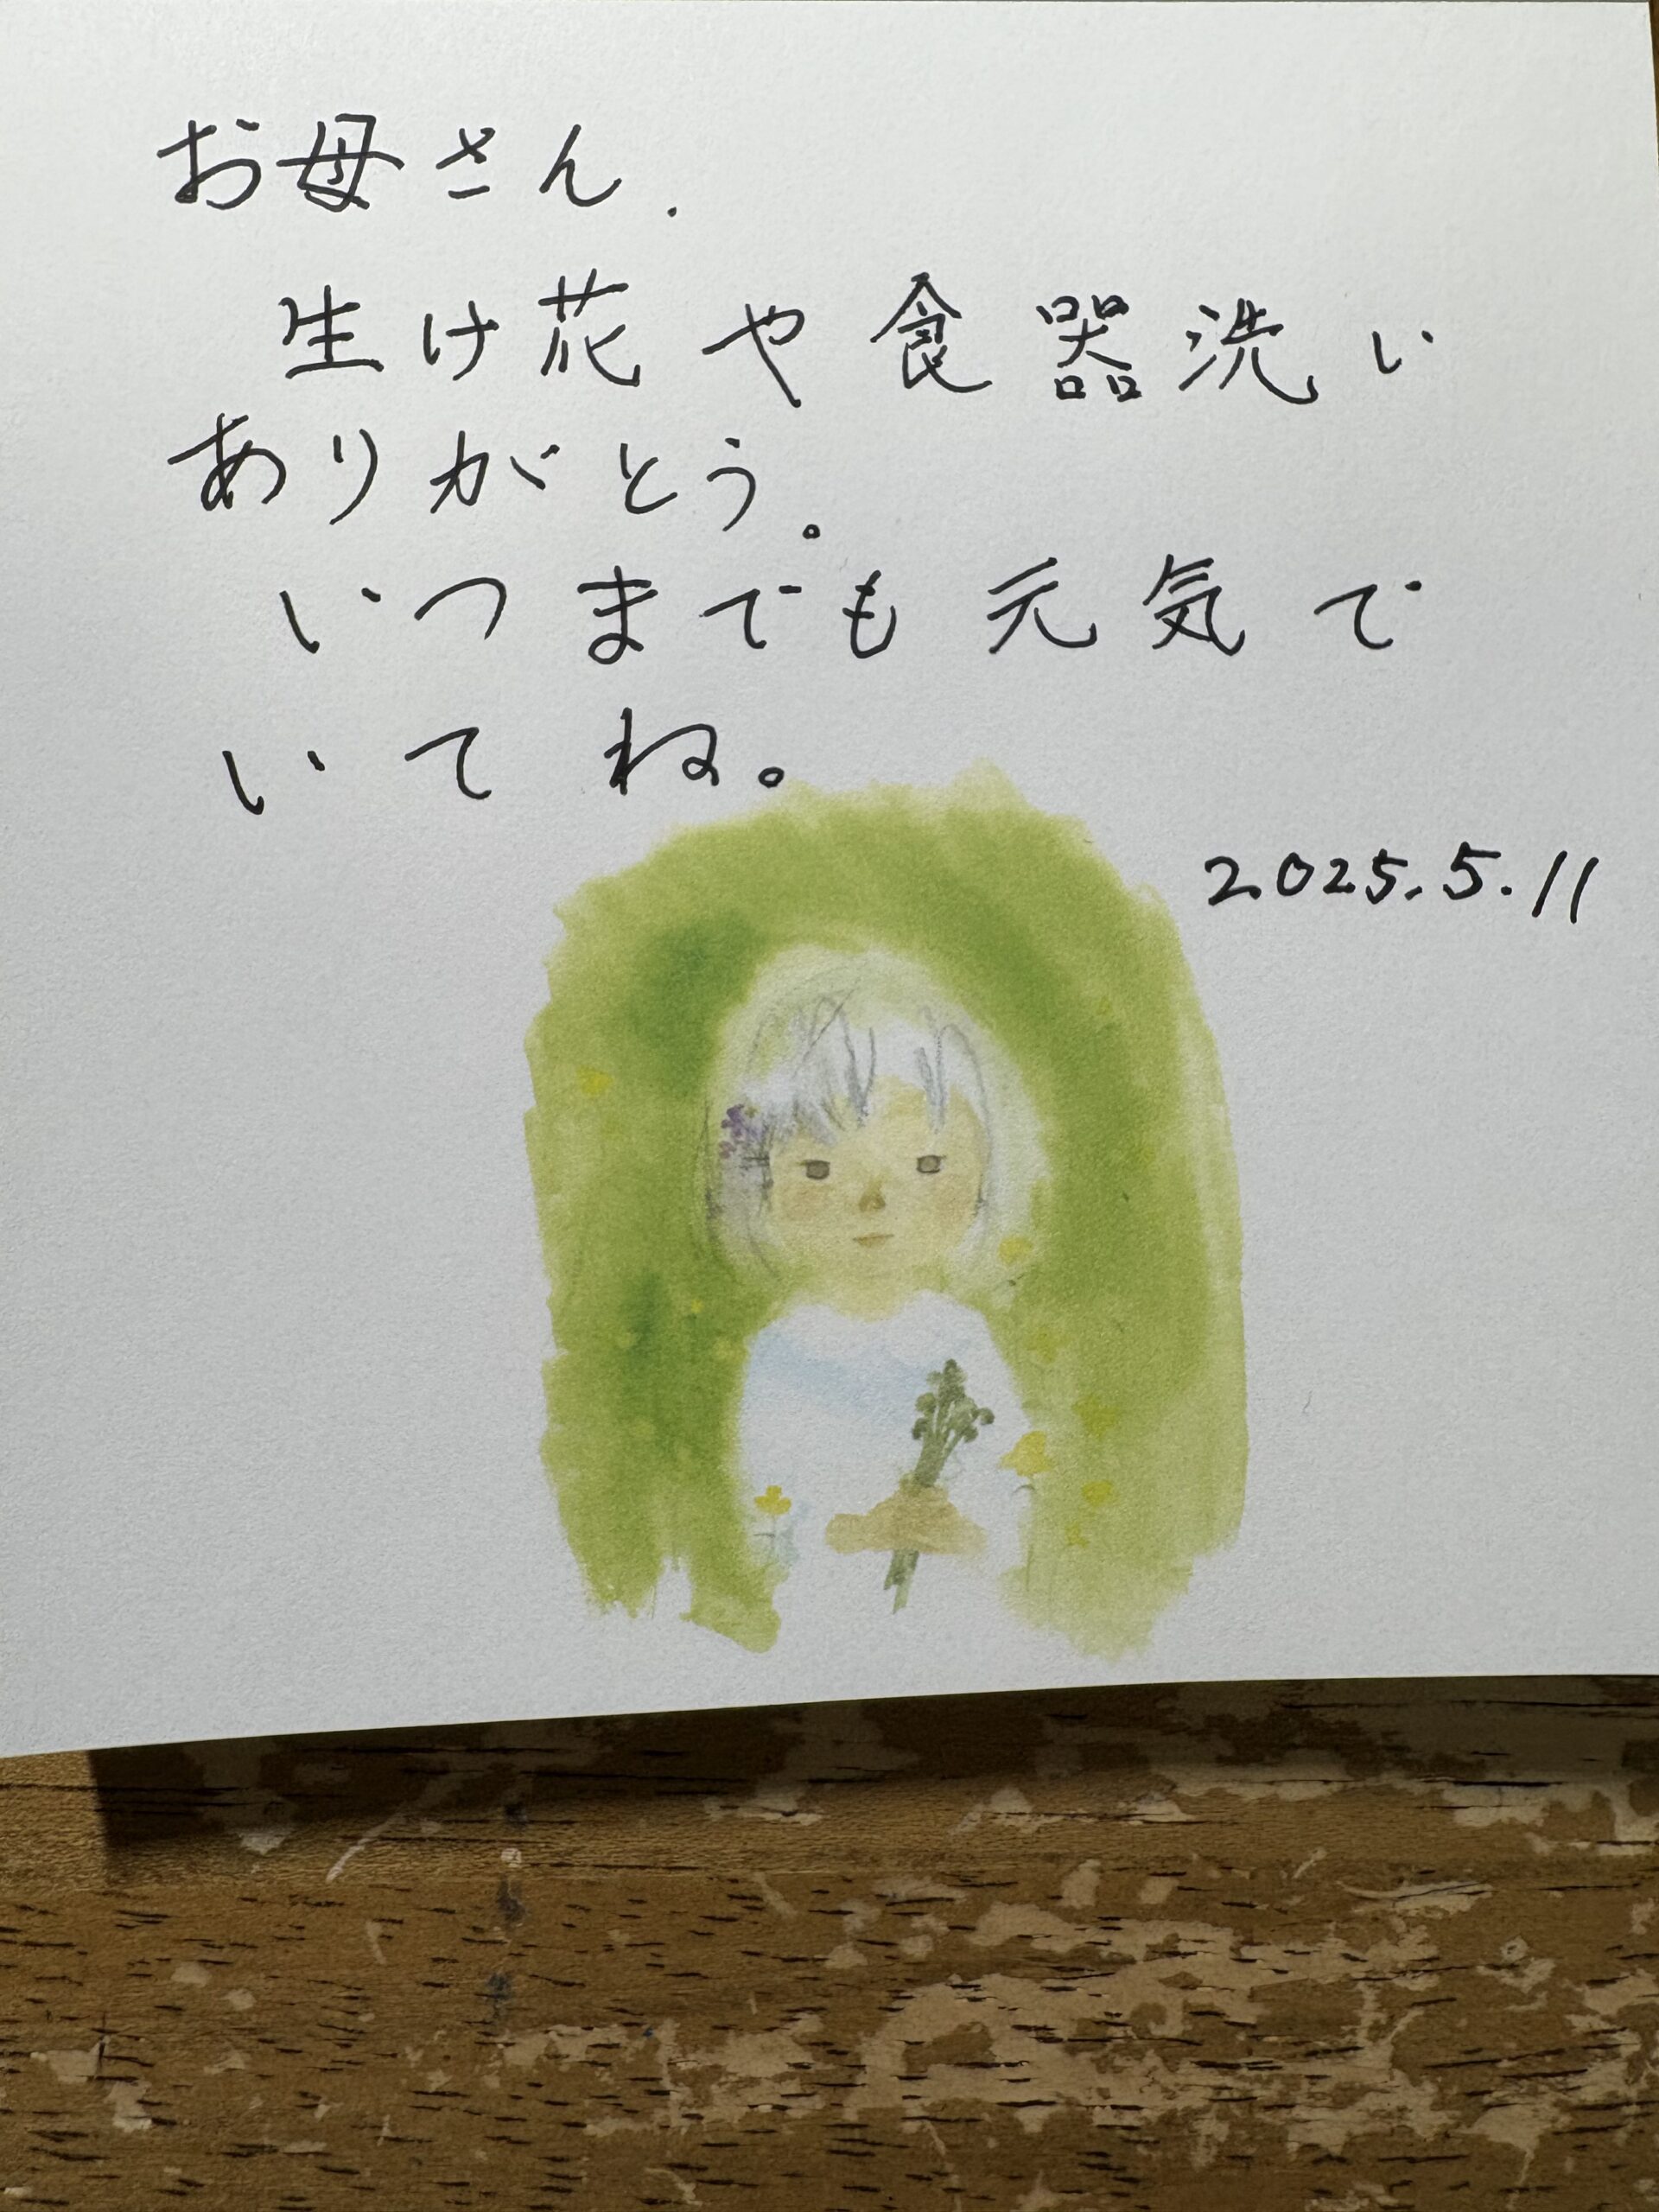 お母さん.
生け花や食器洗い
ありがとう。
いつまでも元気で
いてね。
2025.5.11